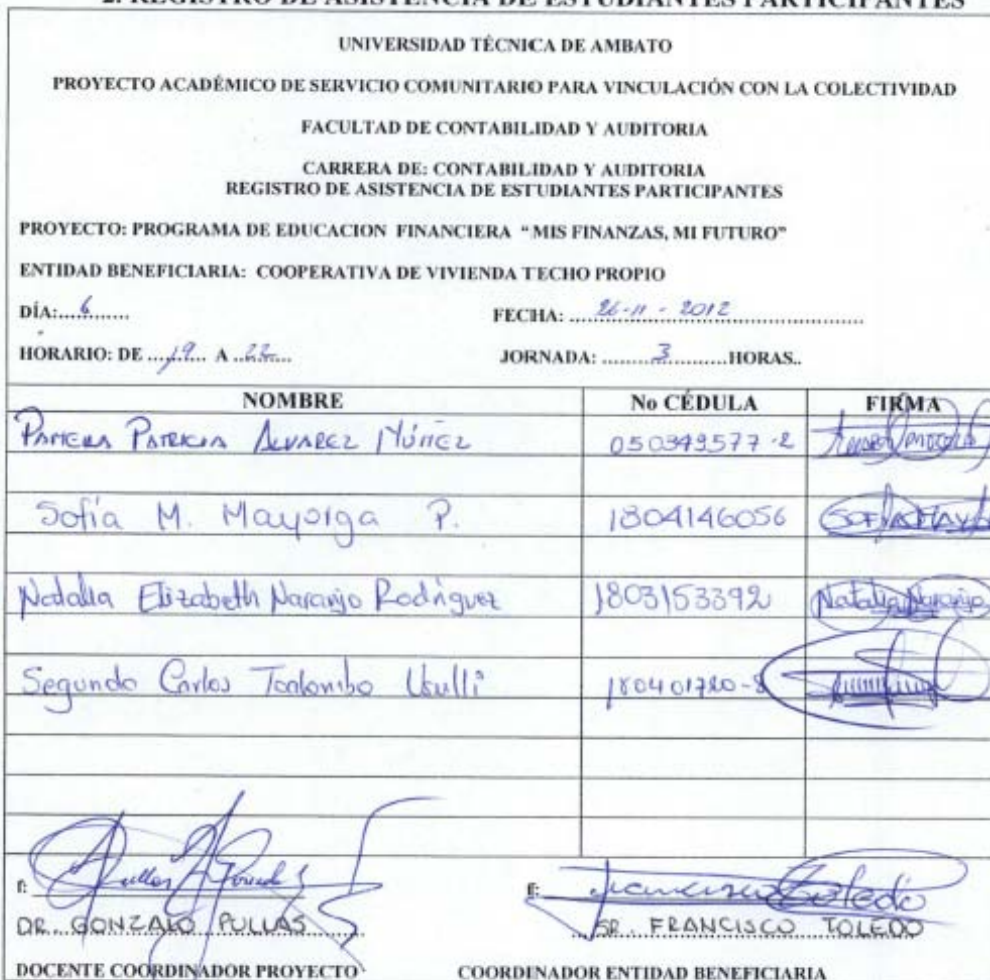 2. REGISTRO DE ASISTENCIA DE ESTUDIANTES PARTICIPANTES
UNIVERSIDAD TÉCNICA DE AMBATO
PROYECTO ACADÉMICO DE SERVICIO COMUNITARIO PARA VINCULACIÓN CON LA COLECTIVIDAD
FACULTAD DE CONTABILIDAD Y AUDITORIA
CARRERA DE: CONTABILIDAD Y AUDITORIA
REGISTRO DE ASISTENCIA DE ESTUDIANTES PARTICIPANTES
PROYECTO: PROGRAMA DE EDUCACION FINANCIERA “MIS FINANZAS, MI FUTURO”
ENTIDAD BENEFICIARIA: COOPERATIVA DE VIVIENDA TECHO PROPIO
DÍA:....6....... FECHA: ....26-11-2012....
HORARIO: DE ....19.... A ...22.... JORNADA: ..........3..........HORAS..
NOMBRE No CÉDULA FIRMA
PATRICIA ALVAREZ NÚÑEZ 050349577-2
Sofía M. Mayorga P. 1804146056 SOFIA MAY
Natalia Elizabeth Naranjo Rodríguez 1803153392 Natalia Naranjo
Segundo Carlos Toalombo 
f: f: Francisco Toledo
DR. GONZALO PULLAS SR. FRANCISCO TOLEDO
DOCENTE COORDINADOR PROYECTO COORDINADOR ENTIDAD BENEFICIARIA